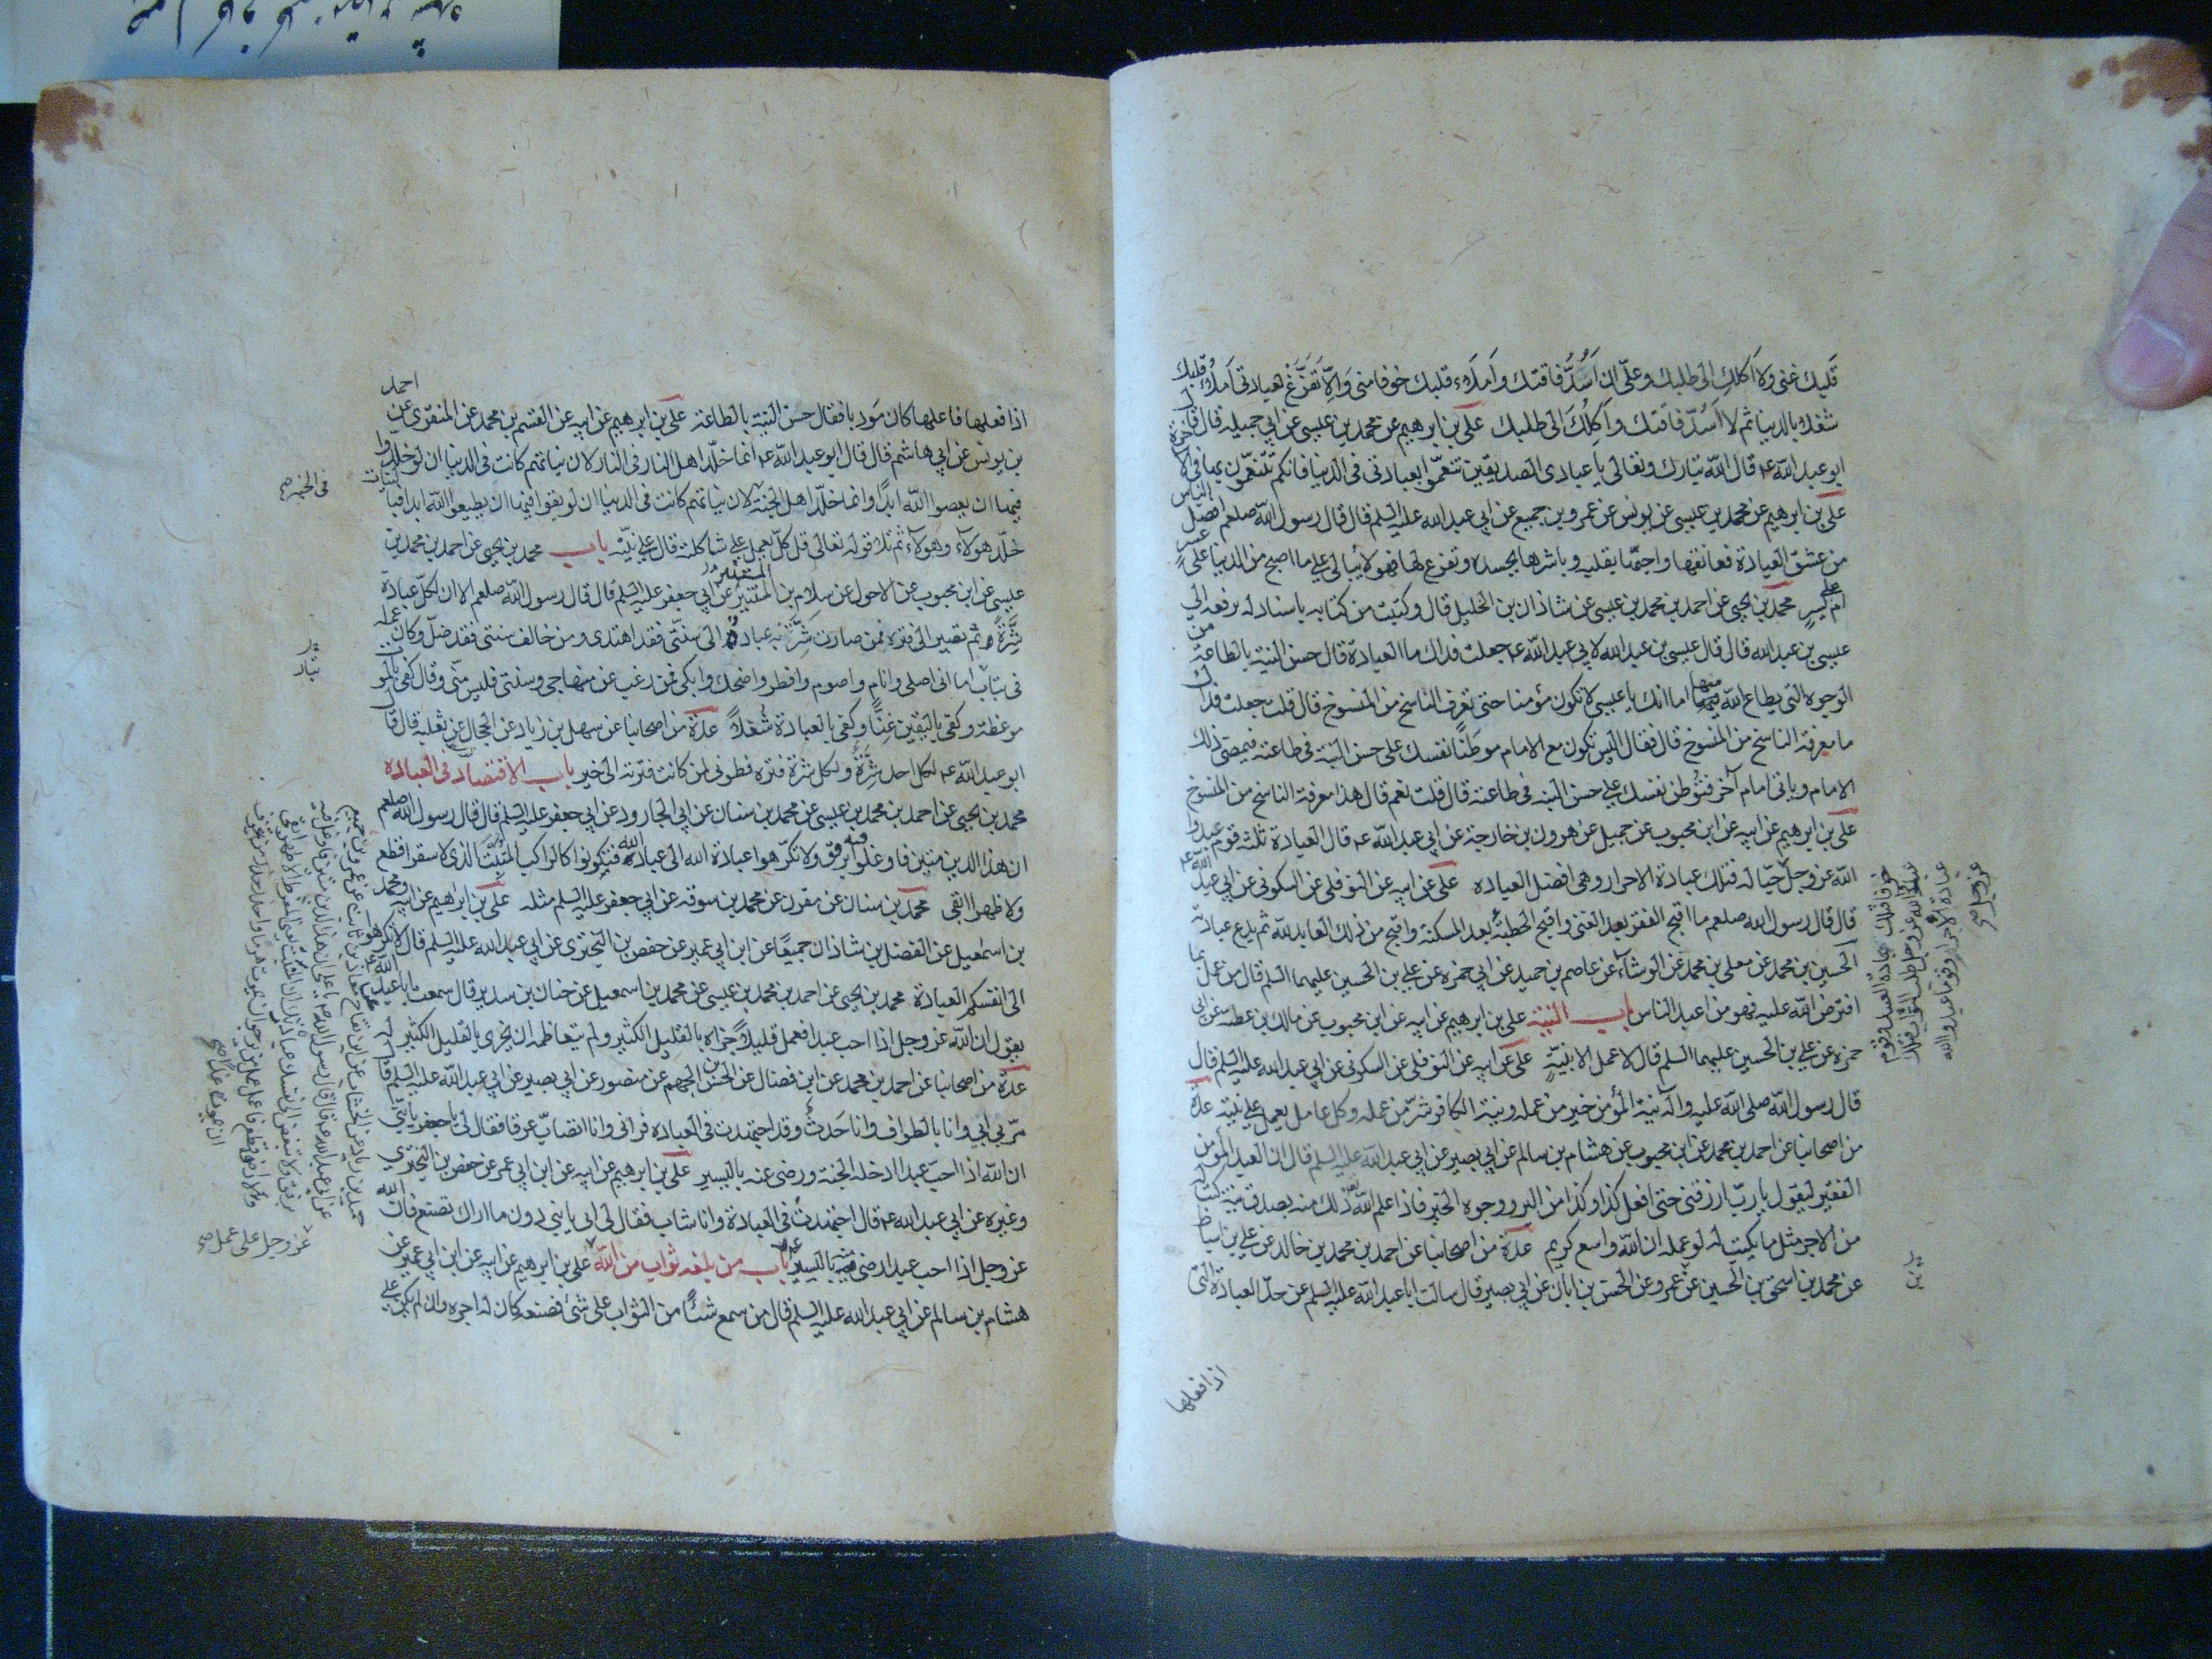 قلبك غنى ولا اكلك الى طلبك وعلىّ ان اَسُدَّ فاقتك واَملَاء قلبك خوفا منى وَاِلّا تَفَرَّغ لعبادتى اَملأ قلبك
شغلا بالدنيا ثم لا اَسُدّ فاقتك واَكِلُكَ الى طلبك على بن ابرهيم عن محمد بن عيسى عن ابى جميله قال قال
ابو عبد الله ع قال الله تبارك وتعالى يا عبادى الصديقين تنعمّوا بعبادتى فى الدنيا فانكم تتنعّمون بها فى الاخرة
على بن ابرهيم عن محمد بن عيسى عن يونس عن عمرو بن جميع عن ابى عبد الله عليه السلم قال قال رسول الله صلعم افضل الناس
من عشق العبادة فعانقها واحبّها بقلبه وباشرها بجسده وتفرغ لها فهو لا يبالى على ما اصبح من الدنيا على عسرٍ
ام على يسرٍ محمد بن يحيى عن احمد بن محمد بن عيسى عن شاذان بن الخليل قال وكتبت من كتابه باسناد له يرفعه الى
عيسى بن عبد الله قال قال عيسى بن عبد الله لابى عبد الله ع جعلت فداك ما العبادة قال حسن النية بالطاعة من
الوجوه التى يطاع الله منها اما انك يا عيسى لا تكون مؤمنا حتى تعرف الناسخ من المنسوخ قال قلت جعلت فداك
ما معرفة الناسخ من المنسوخ قال فقال اليس تكون مع الامام موطّنًا نفسك على حسن النية فى طاعته فيمضى ذلك
الامام وياتى امام آخر فتُوطّن نفسك على حسن النية فى طاعته قال قلت نعم قال هذا معرفة الناسخ من المنسوخ
على بن ابرهيم عن ابيه عن ابن محبوب عن جميل عن هرون بن خارجة عن ابى عبد الله ع قال العبادة ثلثه قوم عبدوا
الله عز وجل حبّا له فتلك عبادة الاحرار وهى افضل العباده على عن ابيه عن النوفلى عن السكونى عن ابى عبد الله ع
قال قال رسول الله صلعم ما اقبح الفقر بعد الغنى واقبح الخطيئة بعد المسكنة واقبح من ذلك العابد لله ثم يدع عبادته
الحسين بن محمد عن معلى بن محمد عن الوشاء عن عاصم بن حميد عن ابى حمزه عن على بن الحسين عليهما السلم قال من عمل بما
افترض الله عليه فهو من اعبد الناس باب النية على بن ابرهيم عن ابيه عن ابن محبوب عن مالك بن عطيه عن ابى
حمزه عن على بن الحسين عليهما السلم قال لا عمل الا بنيةٍ على عن ابيه عن النوفلى عن السكونى عن ابى عبد الله عليه السلم قال
قال رسول الله صلى الله عليه وآله نية المؤمن خير من عمله ونية الكافر شرّ من عمله وكل عامل يعمل على نيته عدة
من اصحابنا عن احمد بن محمد عن ابن محبوب عن هشام بن سالم عن ابى بصير عن ابى عبد الله عليه السلم قال ان العبد المؤمن
الفقير ليقول يا ربّ ارزقنى حتى افعل كذا وكذا من البر ووجوه الخير فاذا علم الله ذلك منه بصدق نية كتب له
من الاجر مثل ما يكتب له لو عمله ان الله واسع كريم عدة من اصحابنا عن احمد بن محمد بن خالد عن على بن اسباط
عن محمد بن اسحق بن الحسين عن عمرو عن الحسن بن ابان عن ابى بصير قال سالت ابا عبد الله عليه السلم عن حدّ العبادة التى
اذا فعلها
خوفا فتلك عبادة العبيد وقوم
عبدوا الله عز وجل طلب الثواب فتلك
عبادة الاجراء وقوم عبدوا الله
عز وجل صح
اذا فعلها فاعلها كان مَودّيا فقال حسن النية بالطاعة على بن ابرهيم عن ابيه عن القسم بن محمد عن المنقرى عن احمد
بن يونس عن ابى هاشم قال قال ابو عبد الله ع انما خلّد اهل النار فى النار لان نياتهم كانت فى الدنيا ان لو خلّدوا
فيها ان يعصوا الله ابدًا وانما خلّد اهل الجنة لان نياتهم كانت فى الدنيا ان لو بقوا فيها ان يطيعوا الله ابدا فبالنيات
فى الجنة صح
خلّد هولآء وهولآء ثم تلا قوله تعالى قل كلّ يعمل على شاكلته قال على نيّته باب محمد بن يحيى عن احمد بن محمد بن
عيسى عن ابن محبوب عن الاحول عن سلام بن المستنير عن ابى جعفر عليه السلم قال قال رسول الله صلعم الا ان لكلّ عبادة
شِرَّةً ثم تصير الى فترة فمن صارت شِرَّة عبادته الى سنّتى فقد اهتدى ومن خالف سنتى فقد ضلّ وكان عمله
فى تباب اما انى اصلى وانام واصوم وافطر واضحك وابكى فمن رغب عن منهاجى وسنتى فليس منّى وقال كفى بالموت
موعظة وكفى باليقين غِنًا وكفى بالعبادة شُغلاً عدة من اصحابنا عن سهل بن زياد عن الحجال عن ثعلبة قال قال
ابو عبد الله ع لكل احد شِرَّةٌ ولكل شرّة فترة فطوبى لمن كانت فترته الى خير باب الاقتصاد فى العباده
محمد بن يحيى عن احمد بن محمد بن عيسى عن محمد بن سنان عن ابى الجارود عن ابى جعفر عليه السلم قال قال رسول الله صلعم
ان هذا الدين متين فاوغلوا فيه برفق ولا تكرّهوا عبادة الله الى عباد الله فتكونوا كالراكب المُنبَتّ الذى لا سفرا قطع
ولا ظهرا ابقى محمد بن سنان عن مقرن عن محمد بن سوقه عن ابى جعفر عليه السلم مثله على بن ابراهيم عن ابيه ومحمد
بن اسمعيل عن الفضل بن شاذان جميعًا عن ابن ابى عمير عن حفص بن البخترى عن ابى عبد الله عليه السلم قال لا تكرهوا
الى انفسكم العبادة محمد بن يحيى عن احمد بن محمد بن عيسى عن محمد بن اسمعيل عن حنان بن سدير قال سمعت ابا عبد الله ع
يقول ان الله عز وجل اذا احب عبدا فعمل قليلا جزاه بالقليل الكثير ولم يتعاظمه ان يجزى بالقليل الكثير
عدة من اصحابنا عن احمد بن محمد عن ابن فضال عن الحسن بن الجهم عن منصور عن ابى بصير عن ابى عبد الله عليه السلم قال
مرّ بى ابى وانا بالطواف وانا حَدَث وقد اجتهدت فى العباده فرانى وانا اتصابّ عرقا فقال لى يا جعفر يا بنىّ
ان الله اذا احبّ عبدا ادخله الجنة ورضى عنه باليسير على بن ابرهيم عن ابيه عن ابن ابى عمير عن حفص بن البخترى
وغيره عن ابى عبد الله ع قال اجتهدت فى العبادة وانا شاب فقال لى ابى يا بنى دون ما اراك تصنع فان الله
عز وجل اذا احب عبدا رضى منه باليسير باب من بلغه ثواب من الله على بن ابرهيم عن ابيه عن ابن ابى عمير عن
هشام بن سالم عن ابى عبد الله عليه السلم قال من سمع شيئًا من الثواب على شىء فصنعه كان له اجره وان لم يكن على
حميد بن زياد عن الخشاب عن ابن بقاح عن معاذ بن ثابت عن عمرو بن جميع
عن ابى عبد الله ع قال قال رسول الله ص يا على ان هذا الدين متين فاوغل فيه
برفق ولا تبغض الى نفسك عبادة ربك ان المنبت يعنى المفرط لا ظهرا ابقى
ولا ارضا قطع فاعمل عمل من يرجو ان يموت هرما واحذر حذر من يتخوف
ان يموت غدا صح
عز وجل على عمل صح